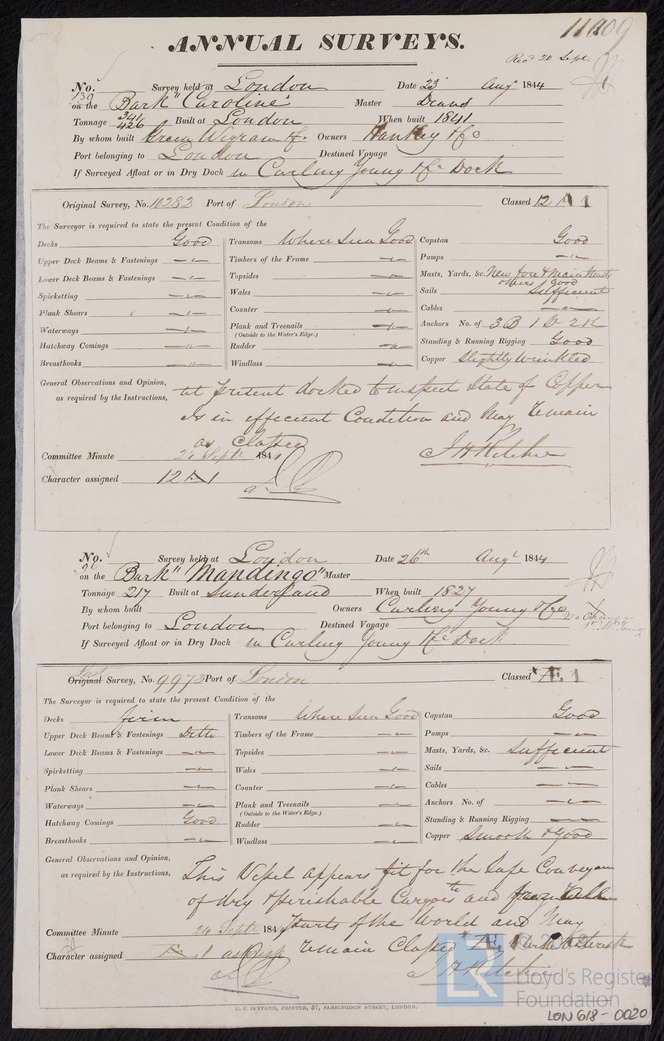 11209
ANNUAL SURVEYS.
Rec'd 20 Sept
No. 139 Survey held at London Date 23 Augt 1844
on the Bark "Caroline" Master Deans
Tonnage 341 426 Built at London When built 1841
By whom built Green Wigram &c Owners Hankey & Co
Port belonging to London Destined Voyage
If Surveyed Afloat or in Dry Dock in Curling Young & Co Dock
Original Survey, No. 10282 Port of London Classed 12 A 1
The Surveyor is required to state the present Condition of the
Decks Good Transoms Where seen Good Capstan Good
Upper Deck Beams & Fastenings Timbers of the Frame Pumps
Lower Deck Beams & Fastenings Topsides Masts, Yards, &c. New fore & main masts others good
Spirketting Wales Sails Sufficient
Plank Shears Counter Cables
Waterways Plank and Treenails (Outside to the Water's Edge.) Anchors No. of 3 B 1 S 2 K
Hatchway Comings Rudder Standing & Running Rigging Good
Breasthooks Windlass Copper Slightly wrinkled
General Observations and Opinion, as required by the Instructions,
at present docked to inspect State of Copper
is in efficient Condition and May Remain
as Classed
J H Ritchie
Committee Minute 24 Septr 184
Character assigned 12 A 1
No. 96 Survey held at London Date 26th Augt 1844
on the Bark "Mandingo" Master
Tonnage 217 Built at Sunderland When built 1827
By whom built Owners Curling Young & Co
Port belonging to London Destined Voyage
If Surveyed Afloat or in Dry Dock in Curling Young & Co Dock
Last Original Survey, No. 9973 Port of London Classed *Æ 1
The Surveyor is required to state the present Condition of the
Decks Transoms Where seen Good Capstan Good
Upper Deck Beams & Fastenings Ditto Timbers of the Frame Pumps
Lower Deck Beams & Fastenings Topsides Masts, Yards, &c. Sufficient
Spirketting Wales Sails
Plank Shears Counter Cables
Waterways Plank and Treenails (Outside to the Water's Edge.) Anchors No. of
Hatchway Comings Good Rudder Standing & Running Rigging
Breasthooks Windlass Copper Smooth & Good
General Observations and Opinion, as required by the Instructions,
This Vessel appears fit for the safe Conveyance
of dry & perishable Cargoes to and from all
parts of the World and May
Remain Classed *Æ 1 with Asterisk
J H Ritchie
Committee Minute 24 Septr 184
Character assigned
C. F. SEYFANG, PRINTER, 57, FARRINGDON STREET, LONDON.
LR Lloyd's Register Foundation
LON 618-0020